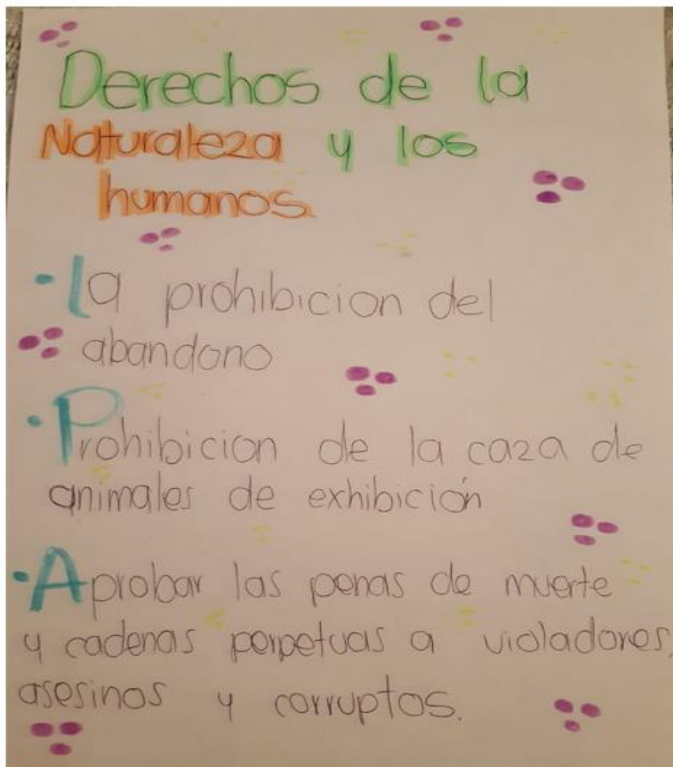 Derechos de la
Naturaleza y los
humanos.
• La prohibicion del
abandono
• Prohibicion de la caza de
animales de exhibición
• Aprobar las penas de muerte
y cadenas perpetuas a violadores,
asesinos y corruptos.